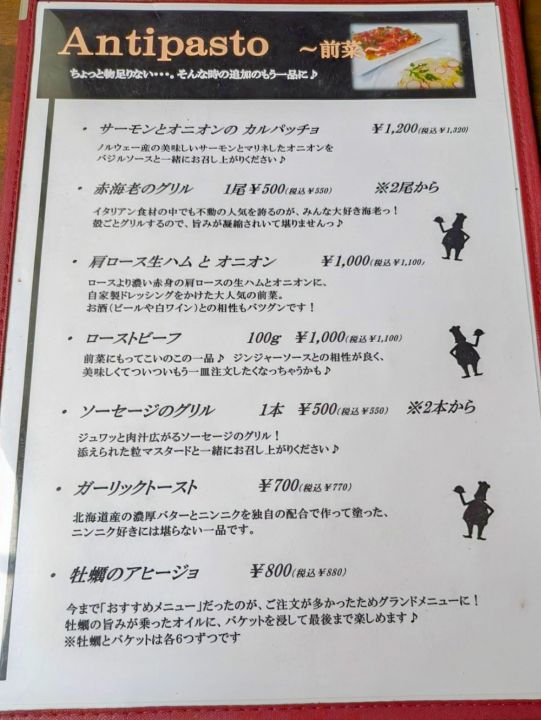 Antipasto ～前菜～
ちょっと物足りない・・・。そんな時の追加のもう一品に♪
・ サーモンとオニオンの カルパッチョ ￥1,200(税込￥1,320)
ノルウェー産の美味しいサーモンとマリネしたオニオンを
バジルソースと一緒にお召し上がりください♪
・ 赤海老のグリル 1尾￥500(税込￥550) ※2尾から
イタリアン食材の中でも不動の人気を誇るのが、みんな大好き海老っ！
殻ごとグリルするので、旨みが凝縮されいて堪りませんっ♪
・ 肩ロース生ハム と オニオン ￥1,000(税込￥1,100)
ロースより濃い赤身の肩ロースの生ハムとオニオンに、
自家製ドレッシングをかけた大人気の前菜。
お酒(ビールや白ワイン)との相性もバツグンです！
・ ローストビーフ 100g ￥1,000(税込￥1,100)
前菜にもってこいのこの一品♪ ジンジャーソースとの相性が良く、
美味しくてついついもう一皿注文したくなっちゃうかも♪
・ ソーセージのグリル 1本 ￥500(税込￥550) ※2本から
ジュワッと肉汁広がるソーセージのグリル！
添えられた粒マスタードと一緒にお召し上がりください♪
・ ガーリックトースト ￥700(税込￥770)
北海道産の濃厚バターとニンニクを独自の配合で作って塗った、
ニンニク好きには堪らない一品です。
・ 牡蠣のアヒージョ ￥800(税込￥880)
今まで「おすすめメニュー」だったのが、ご注文が多かったためグランドメニューに！
牡蠣の旨みが乗ったオイルに、バケットを浸して最後まで楽しめます♪
※牡蠣とバケットは各6つずつです